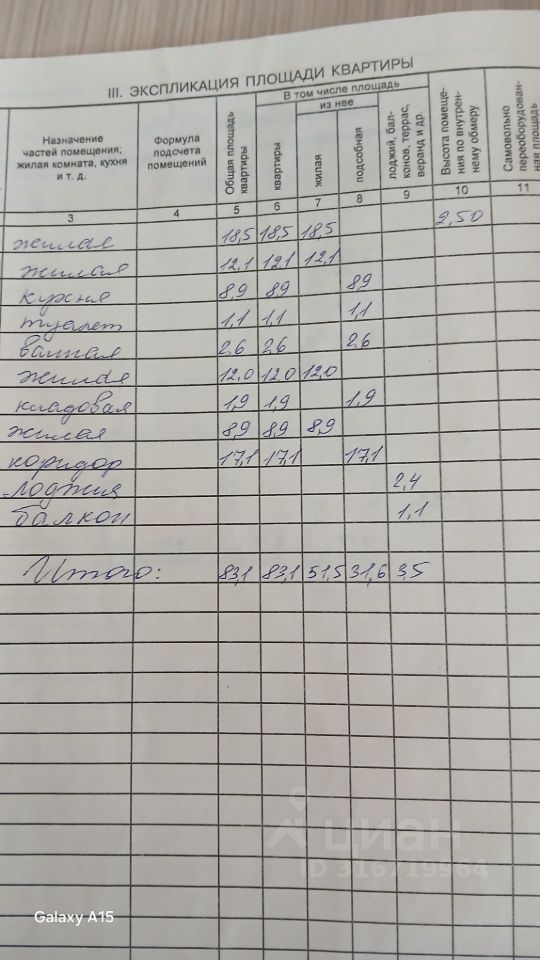 III. ЭКСПЛИКАЦИЯ ПЛОЩАДИ КВАРТИРЫ
Назначение частей помещения; жилая комната, кухня и т. д.
Формула подсчета помещений
Общая площадь квартиры
В том числе площадь
из нее
квартиры
жилая
подсобная
лоджий, балконов, террас, веранд и др.
Высота помещения по внутреннему обмеру
Самовольно переоборудованная площадь
3 4 5 6 7 8 9 10 11
жилая 18,5 18,5 18,5 2,50
жилая 12,1 12,1 12,1
кухня 8,9 8,9 8,9
туалет 1,1 1,1 1,1
ванная 2,6 2,6 2,6
жилая 12,0 12,0 12,0
кладовая 1,9 1,9 1,9
жилая 8,9 8,9 8,9
коридор 17,1 17,1 17,1
лоджия 2,4
балкон 1,1
Итого: 83,1 83,1 51,5 31,6 3,5
циан
ID 316719964
Galaxy A15